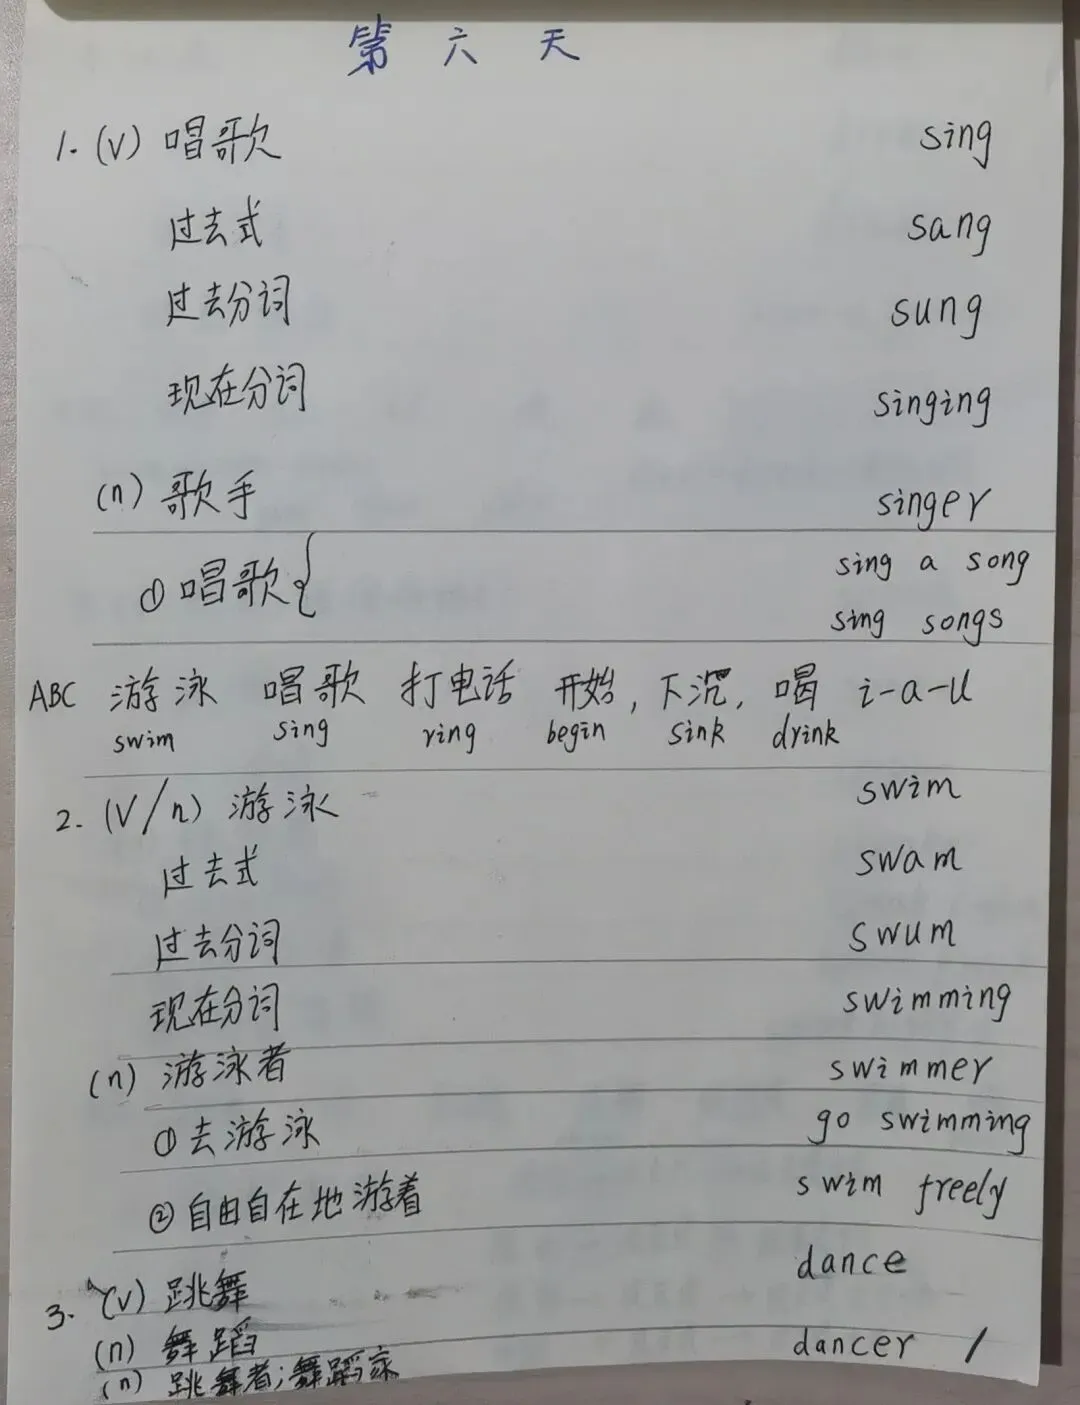 第六天
1. (v) 唱歌 sing
过去式 sang
过去分词 sung
现在分词 singing
(n) 歌手 singer
① 唱歌{ sing a song
sing songs
ABC 游泳 唱歌 打电话 开始, 下沉, 喝 i-a-u
swim sing ring begin sink drink
2. (v/n) 游泳 swim
过去式 swam
过去分词 swum
现在分词 swimming
(n) 游泳者 swimmer
① 去游泳 go swimming
② 自由自在地游着 swim freely
3. (v) 跳舞 dance
(n) 舞蹈
(n) 跳舞者;舞蹈家 dancer /